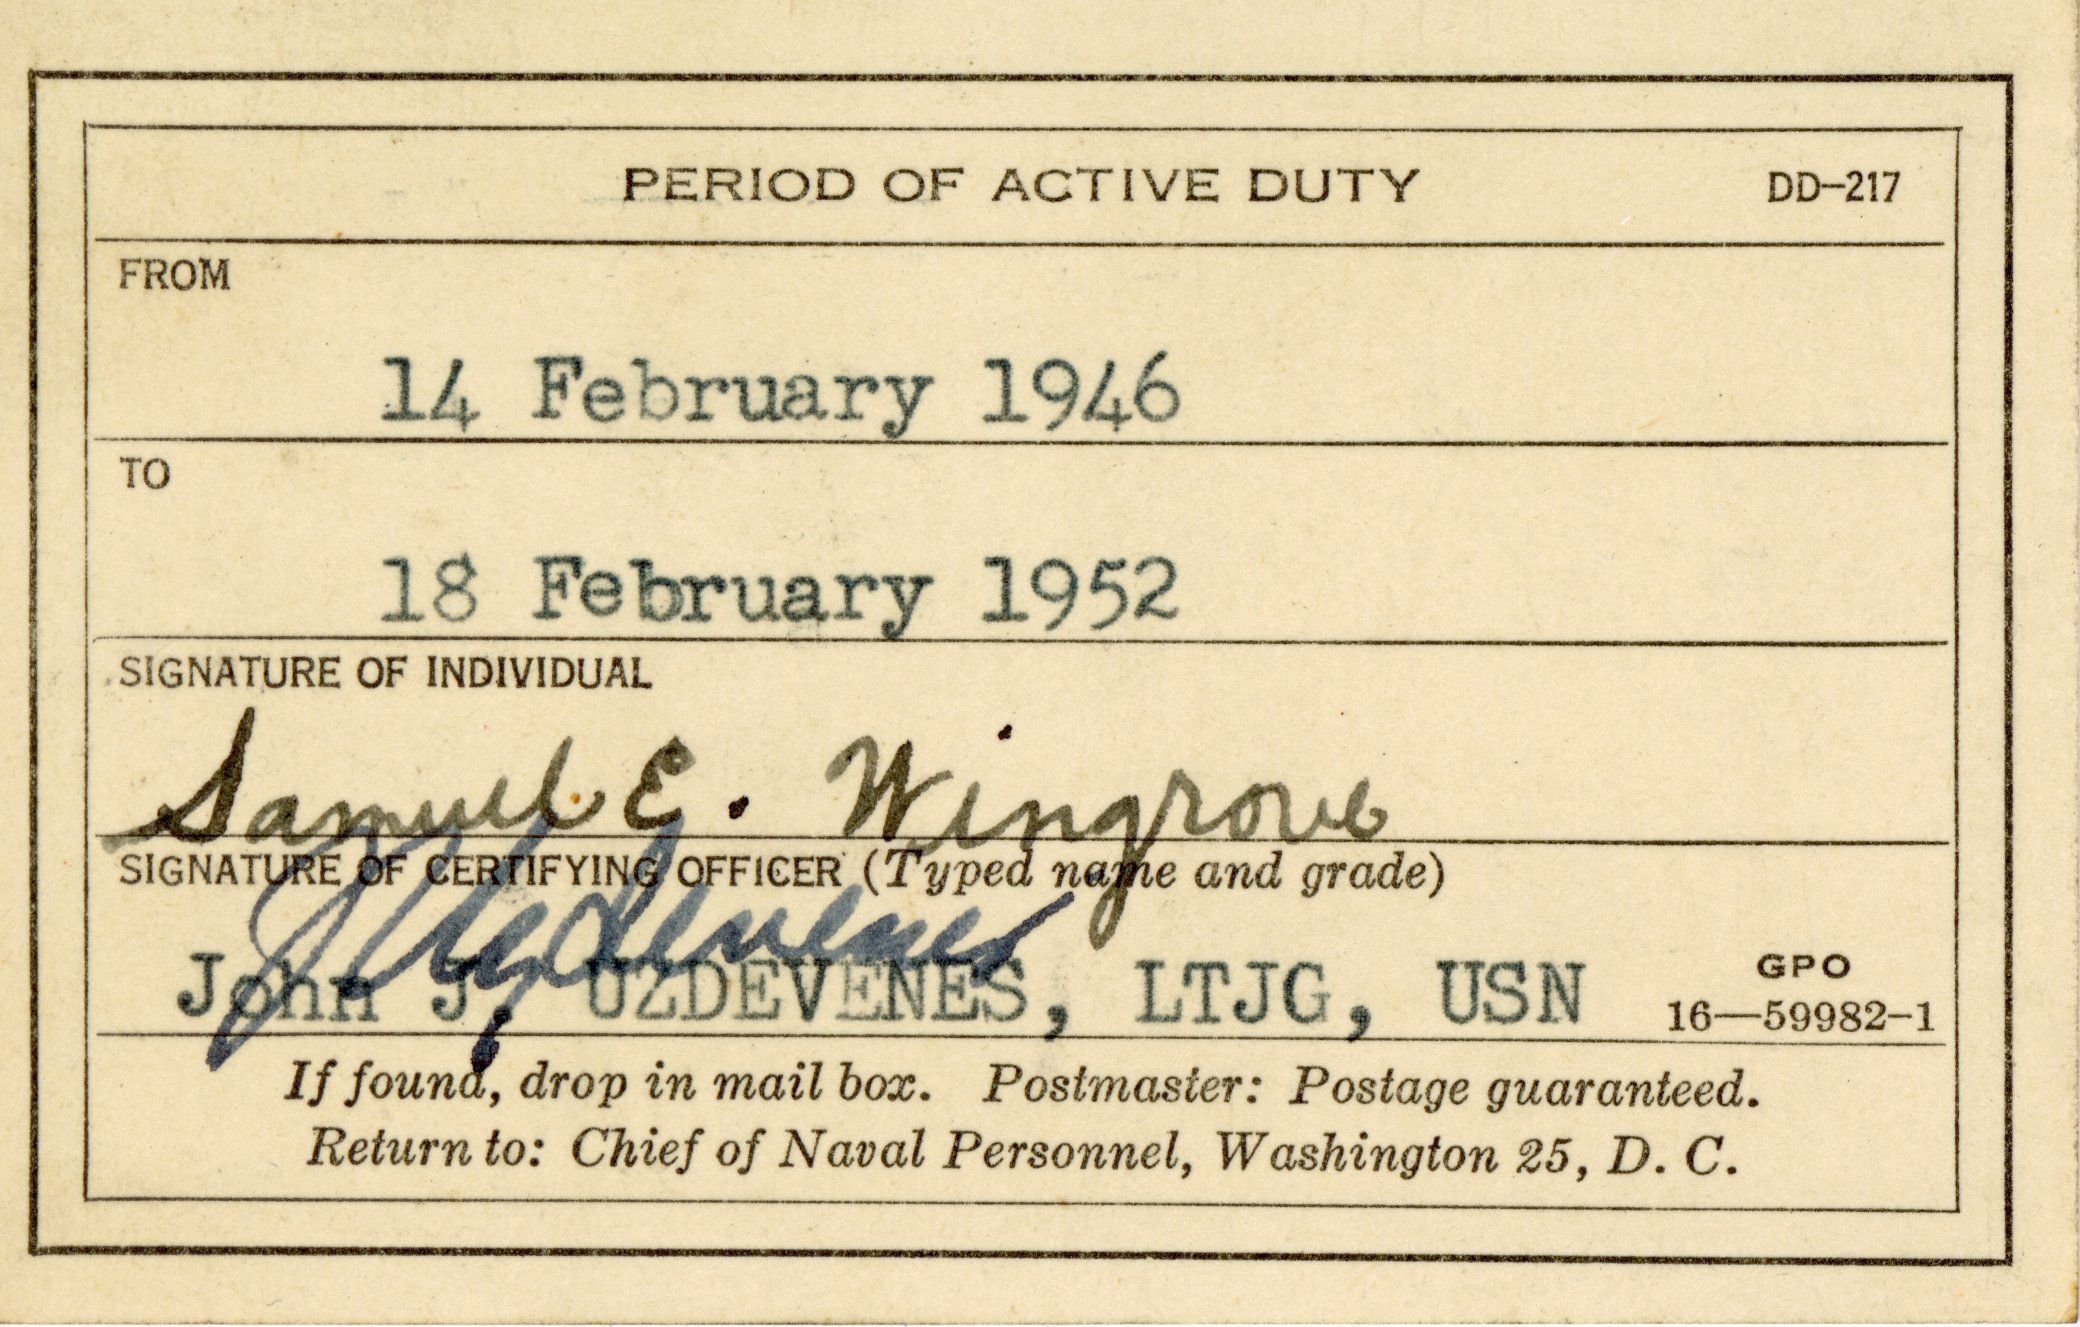 PERIOD OF ACTIVE DUTY DD-217
FROM
14 February 1946
TO
18 February 1952
SIGNATURE OF INDIVIDUAL
Samuel E. Wingrove
SIGNATURE OF CERTIFYING OFFICER (Typed name and grade)
J J Uzdevenes
John J. UZDEVENES, LTJG, USN
GPO
16—59982-1
If found, drop in mail box. Postmaster: Postage guaranteed.
Return to: Chief of Naval Personnel, Washington 25, D. C.